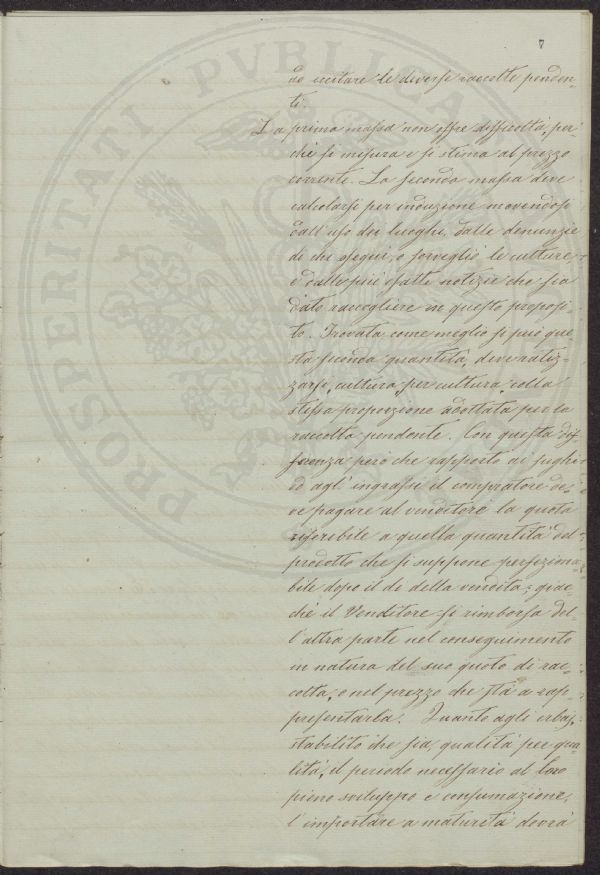 7
ad eccitare le diverse raccolte penden-
ti.
La prima massa non offre difficoltà, per-
chè si misura e si stima al prezzo
corrente. La seconda massa deve
calcolarsi per induzione movendosi
dall'uso dei luoghi, dalle denunzie
di chi seguì, o sorvegliò le culture,
e dalle più esatte notizie che sia
dato raccogliere in questo proposi-
to. Trovata come meglio si può que-
sta seconda quantità, deve ratiz-
zarsi, cultura per cultura, colla
stessa proporzione adottata per la
raccolta pendente. Con questa dif-
ferenza però che rapporto ai sughi
ed agli ingrassi il compratore de-
ve pagare al venditore la quota
riferibile a quella quantità del
prodotto che si suppone perfeziona-
bile dopo il dì della vendita; giac-
chè il Venditore si rimborsa del-
l'altra parte nel conseguimento
in natura del suo quoto di rac-
colta, o nel prezzo che sta a rap-
presentarla. Quanto agli erbai,
stabilito che sia, qualità per qua-
lità, il periodo necessario al loro
pieno sviluppo e consumazione,
l'importare a maturità dovrà
PROSPERITATI PVBLICAE